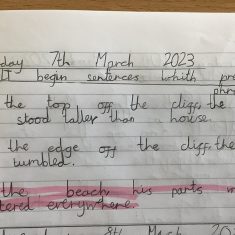 day 7th March 2023
LI begin sentences whith pre
phra
the top off the cliff, the
stood taller than a house.
the edge off the cliff, the
tumbled.
the beach, his parts w
tered everywhere
8th Ma 20